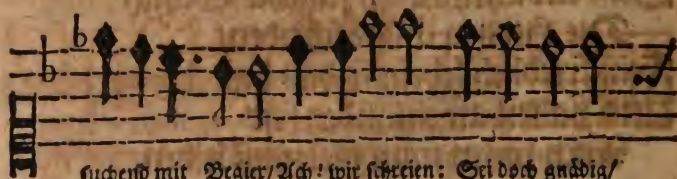 suchend mit Begier/Ach! wir schreien: Sei doch gnädig/